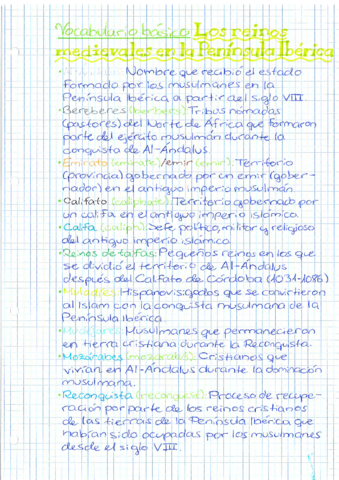 Vocabulario básico Los reinos
medievales en la Península Ibérica
Nombre que recibió el estado
formado por los musulmanes en la
Península Ibérica a partir del siglo VIII.
· Bereberes (berbers): Tribus nómadas
(pastores) del Norte de África que formaron
parte del ejército musulmán durante la
conquista de Al-Ándalus
· Emirato (emirate)/emir (emir): Territorio
(provincia) gobernado por un emir (gober-
nador) en el antiguo imperio musulmán.
· Califato (caliphate): Territorio gobernado por
un califa en el antiguo imperio islámico.
· Califa (caliph): Jefe político, militar y religioso
del antiguo imperio islámico
· Reinos de taifas: Pequeños reinos en los que
se dividió el territorio de Al-Ándalus
después del Califato de Córdoba (1031-1086)
· Muladíes: Hispanovisigodos que se convirtieron
al Islam con la conquista musulmana de la
Península Ibérica.
· Mudéjares: Musulmanes que permanecieron
en tierra cristiana durante la Reconquista.
· Mozárabes (mozarabs): Cristianos que
vivían en Al-Ándalus durante la dominación
musulmana.
· Reconquista (reconquest): Proceso de recupe-
ración por parte de los reinos cristianos
de las tierras de la Península Ibérica que
habían sido ocupadas por los musulmanes
desde el siglo VIII.